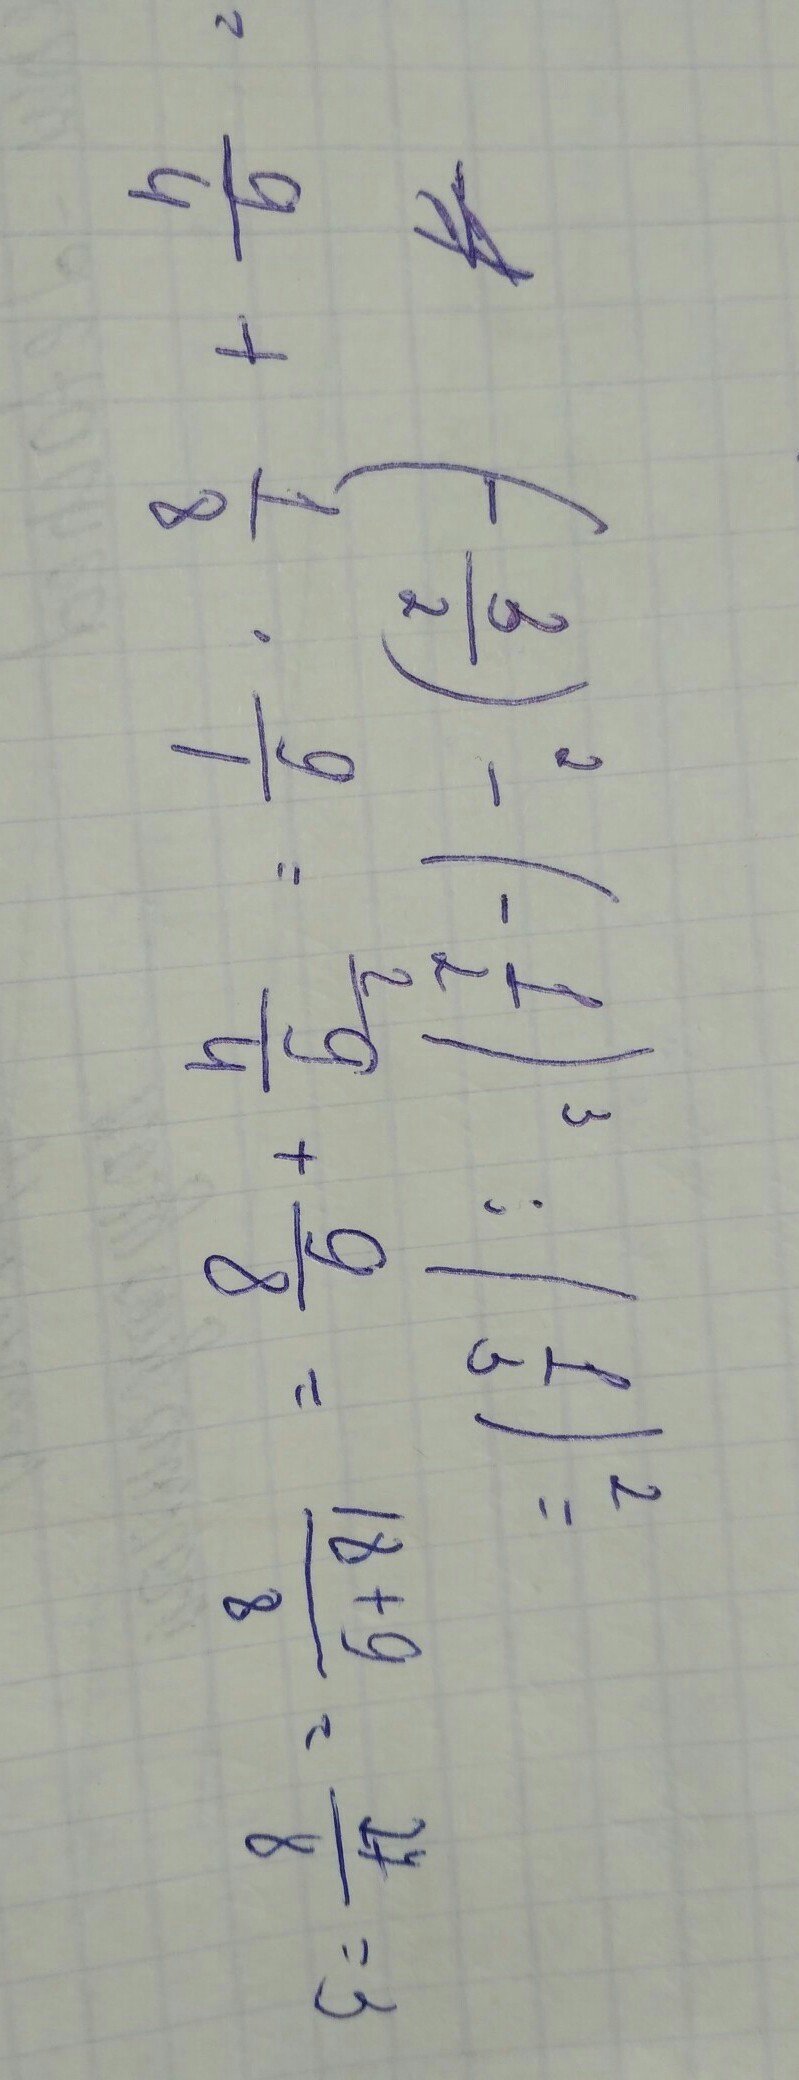 (-3/2)² - (-1/2)³ : (1/3)² =
= 9/4 + 1/8 · 9/1 = 2/ 9/4 + 9/8 = 18+9/8 = 27/8 = 3